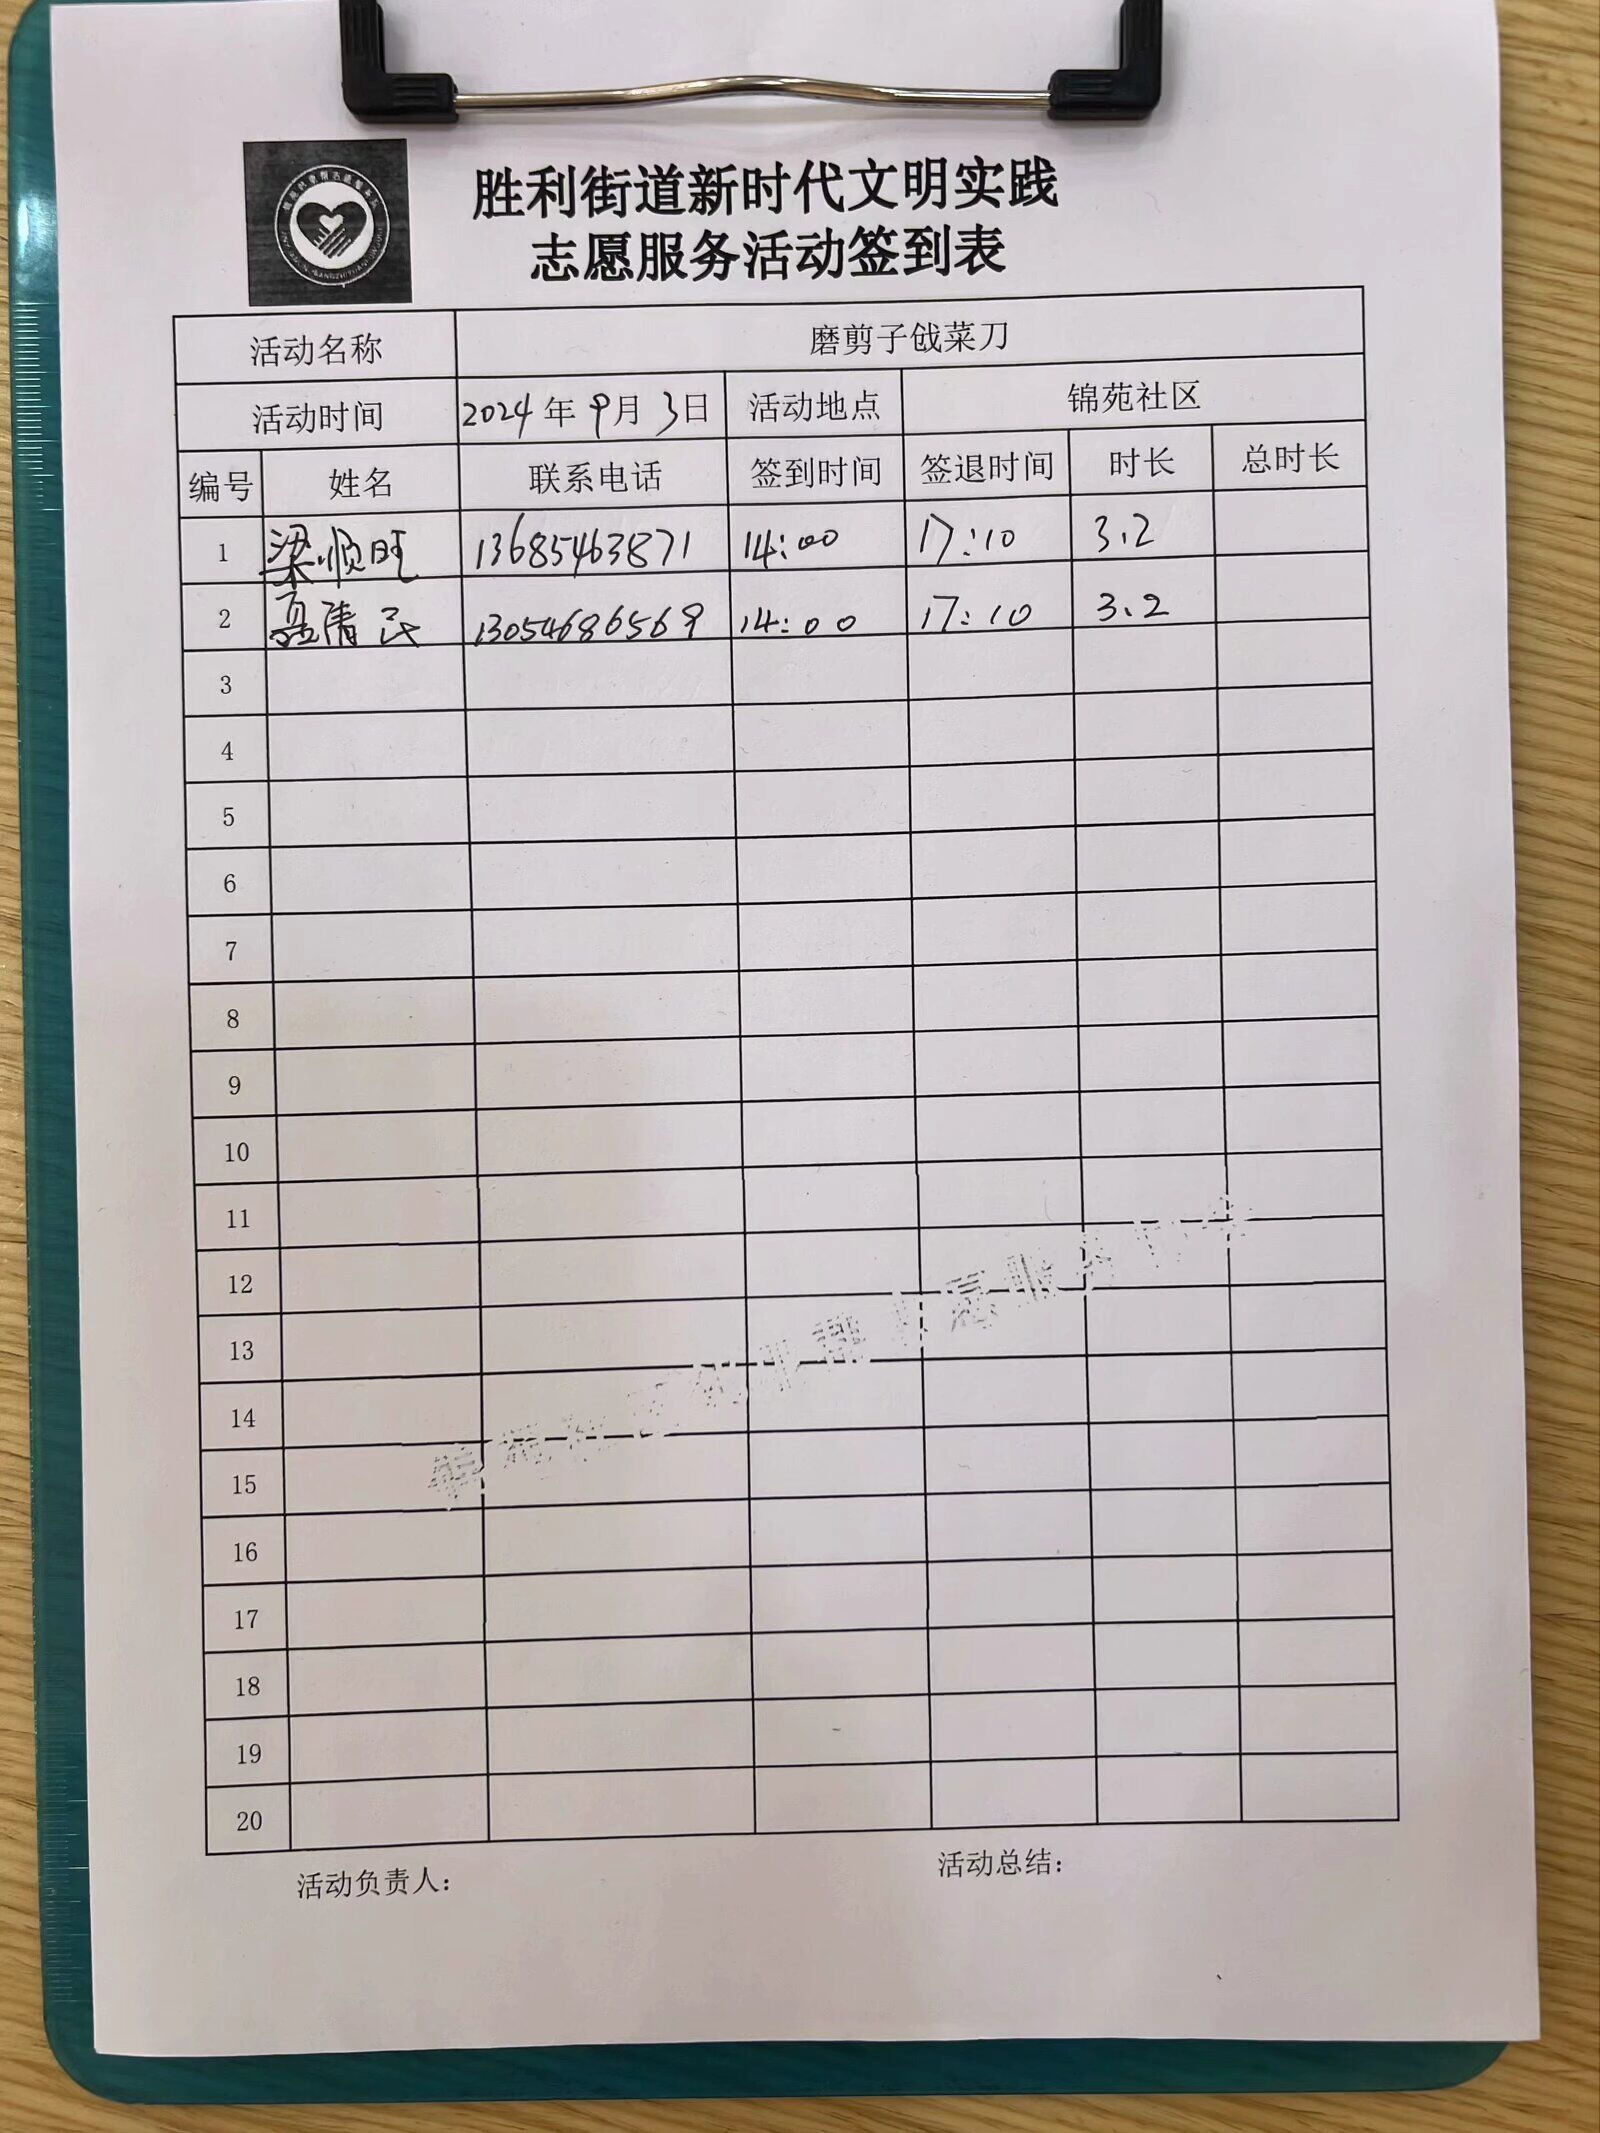 胜利街道新时代文明实践
志愿服务活动签到表
活动名称 磨剪子戗菜刀
活动时间 2024年9月3日 活动地点 锦苑社区
编号 姓名 联系电话 签到时间 签退时间 时长 总时长
1 梁顺旺 13685463871 14:00 17:10 3.2
2 聂清民 13054686569 14:00 17:10 3.2
3
4
5
6
7
8
9
10
11
12
13
14
15
16
17
18
19
20
活动负责人: 活动总结: